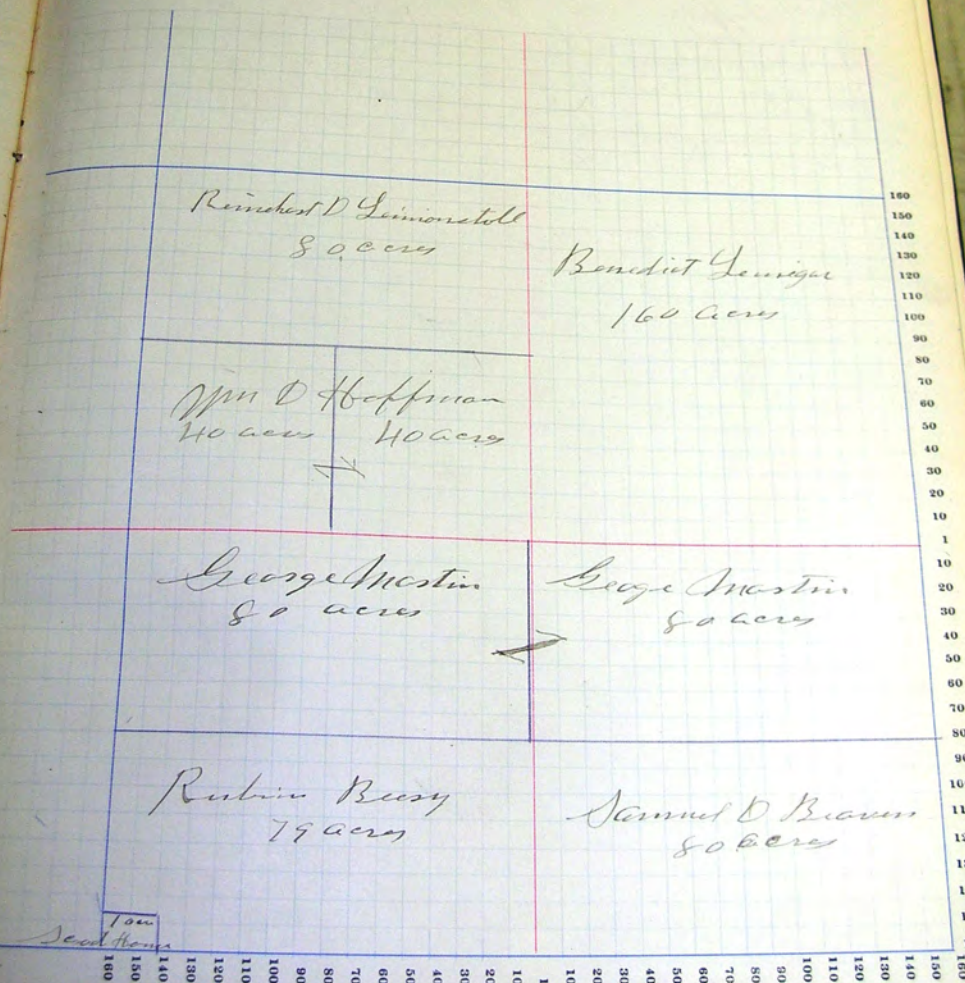 Reinehert D Leimenstoll
80 acres
Benedict Leinigar
160 acres
Wm D Hoffman
40 acres 40 acres
George Martin
80 acres
Geoge Martin
80 acres
Rubin Beery
79 acres
Samuel D Beavers
80 acres
1 acre
House
160
150
140
130
120
110
100
90
80
70
60
50
40
30
20
10
1
10
20
30
40
50
60
70
80
160 150 140 130 120 110 100 90 80 70 60 50 40 30 20 10 1 10 20 30 40 50 60 70 80 90 100 110 120 130 140 150 160